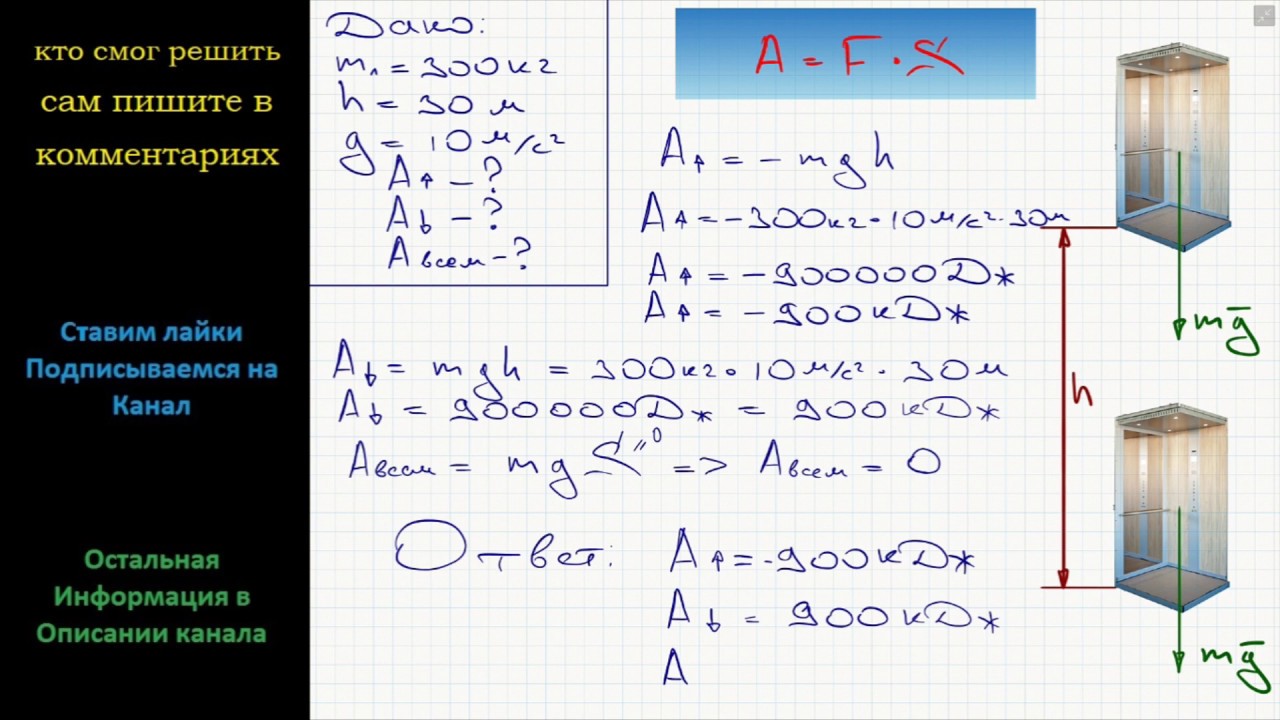 кто смог решить
сам пишите в
комментариях
Ставим лайки
Подписываемся на
Канал
Остальная
Информация в
Описании канала
Дано:
mл = 300 кг
h = 30 м
g = 10 м/с²
A↑ – ?
A↓ – ?
Aвсем – ?
A = F · S
A↑ = – mgh
A↑ = – 300 кг · 10 м/с² · 30 м
A↑ = – 900000 Дж
A↑ = – 900 кДж
A↓ = mgh = 300 кг · 10 м/с² · 30 м
A↓ = 900000 Дж = 900 кДж
Aвсем = mg S = 0 => Aвсем = 0
Ответ: A↑ = - 900 кДж
A↓ = 900 кДж
A
mg̅
h
mg̅